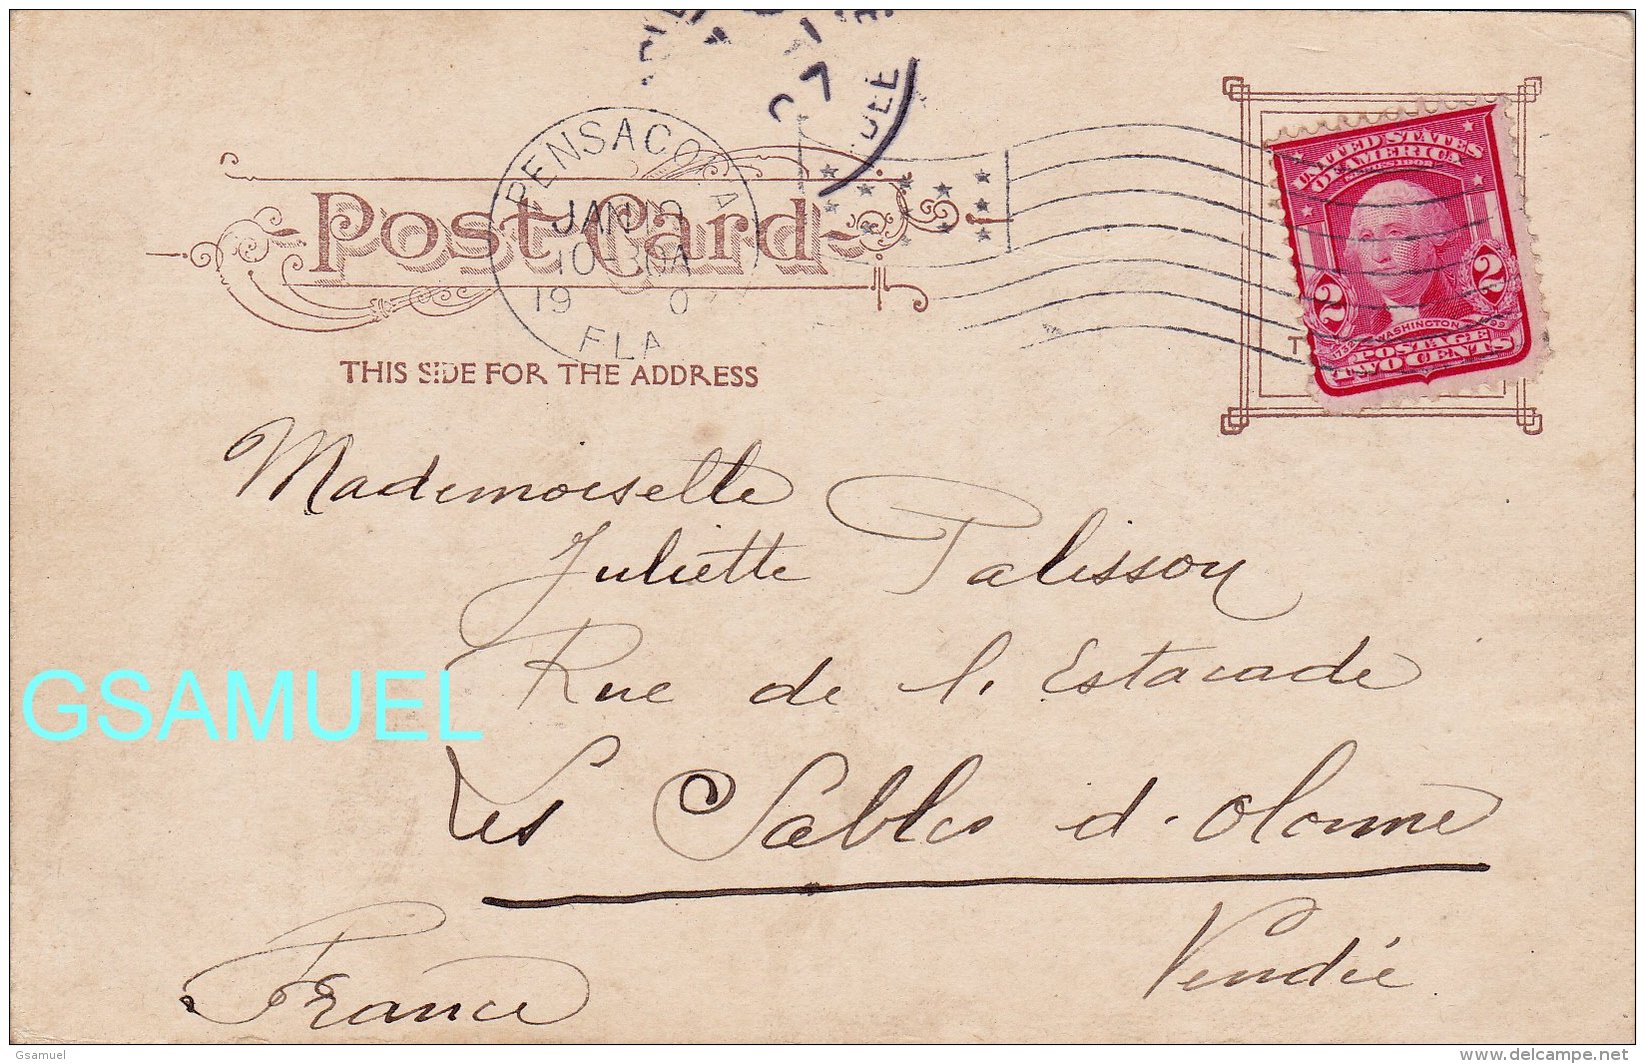 Post Card
PENSACOLA
JAN
10 30 A
19 0
FLA
UNITED STATES
OF AMERICA
2 2
WASHINGTON
POSTAGE
TWO CENTS
THIS SIDE FOR THE ADDRESS
Mademoiselle
Juliette Palisson
Rue de l. Estacade
Les Sables d. Olonne
Vendée
France
GSAMUEL
Gsamuel
www.delcampe.net